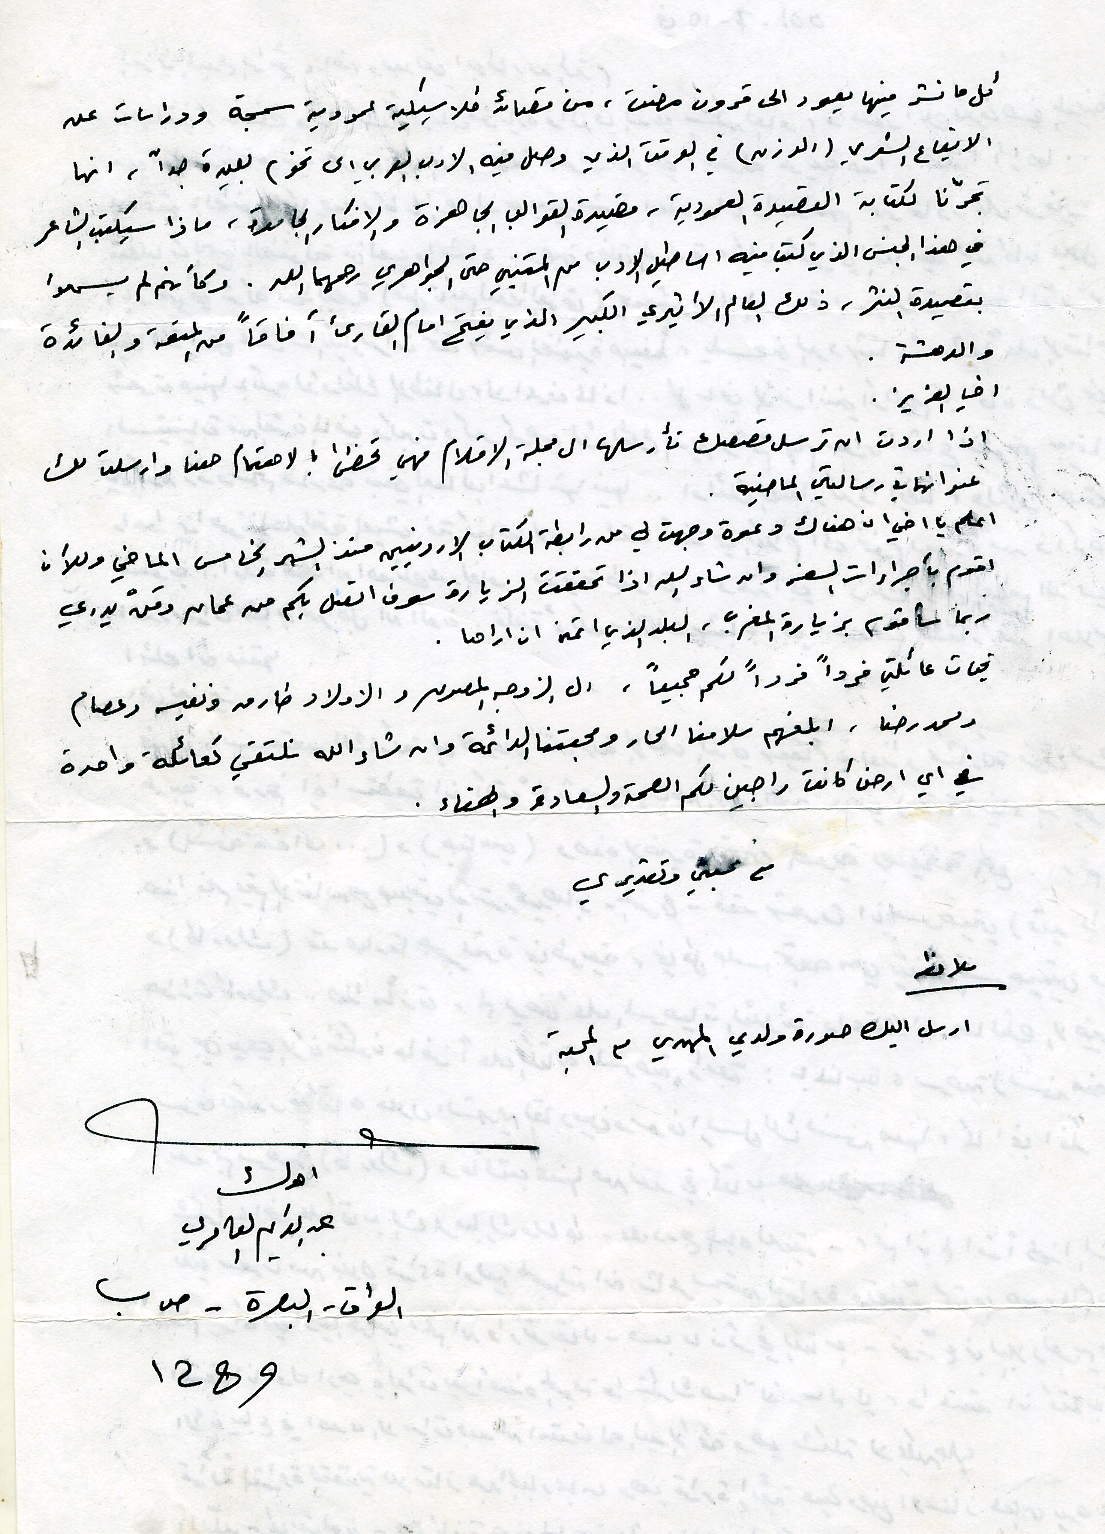 كل ما نشر فيها يعود الى قرون مضت ، من قصائد كلاسيكية عمودية سمجة ودراسات عن
الايقاع الشعري (الوزن) في الوقت الذي وصل فيه الادب العربي الى تخوم بعيدة جداً ، انها
تجرّنا لكتابة القصيدة العمودية ، قصيدة القوالب الجاهزة والافكار الجامدة ، ماذا سيكتب الشاعر
في هذا الجنس الذي كتب فيه اساطيل الادب من المتنبي حتى الجواهري رحمهما الله . وكأنهم لم يسمعوا
بقصيدة النثر ، ذلك العالم الأثيري الكبير الذي يفتح امام القارئ آفاقاً من المتعة والفائدة
والدهشة .
اخي العزيز .
اذا اردت ان ترسل قصصك فأرسلها الى مجلة الاقلام فهي تحضى بالاهتمام هنا وارسلت لك
عنوانها في رسالتي الماضية .
اعلم يا اخي ان هناك دعوة وجهت لي من رابطة الكتاب الاردنيين منذ الشهر الخامس الماضي وللآن
اقوم بأجراءات السفر وان شاء الله اذا تحققت الزيارة سوف اتصل بكم من عمان ومَنْ يدري
ربما سأقوم بزيارة المغرب ، البلد الذي اتمنى ان اراها .
تحيات عائلتي فرداً فرداً لكم جميعاً ، الى الزوجة المصون والاولاد طارق ونفيسه وعصام
ومحمد رضا ، ابلغهم سلامنا الحار ومحبتنا الدائمة وان شاء الله نلتقي كعائلة واحدة
في اي ارض كانت راجين لكم الصحة والسعادة والهناء .
مع محبتي وتقديري
ملاحظة
ارسل اليك صورة ولدي المهدي مع المحبة
اخوك
عبد الكريم العامري
العراق - البصرة - ص ب
١٢٨٩